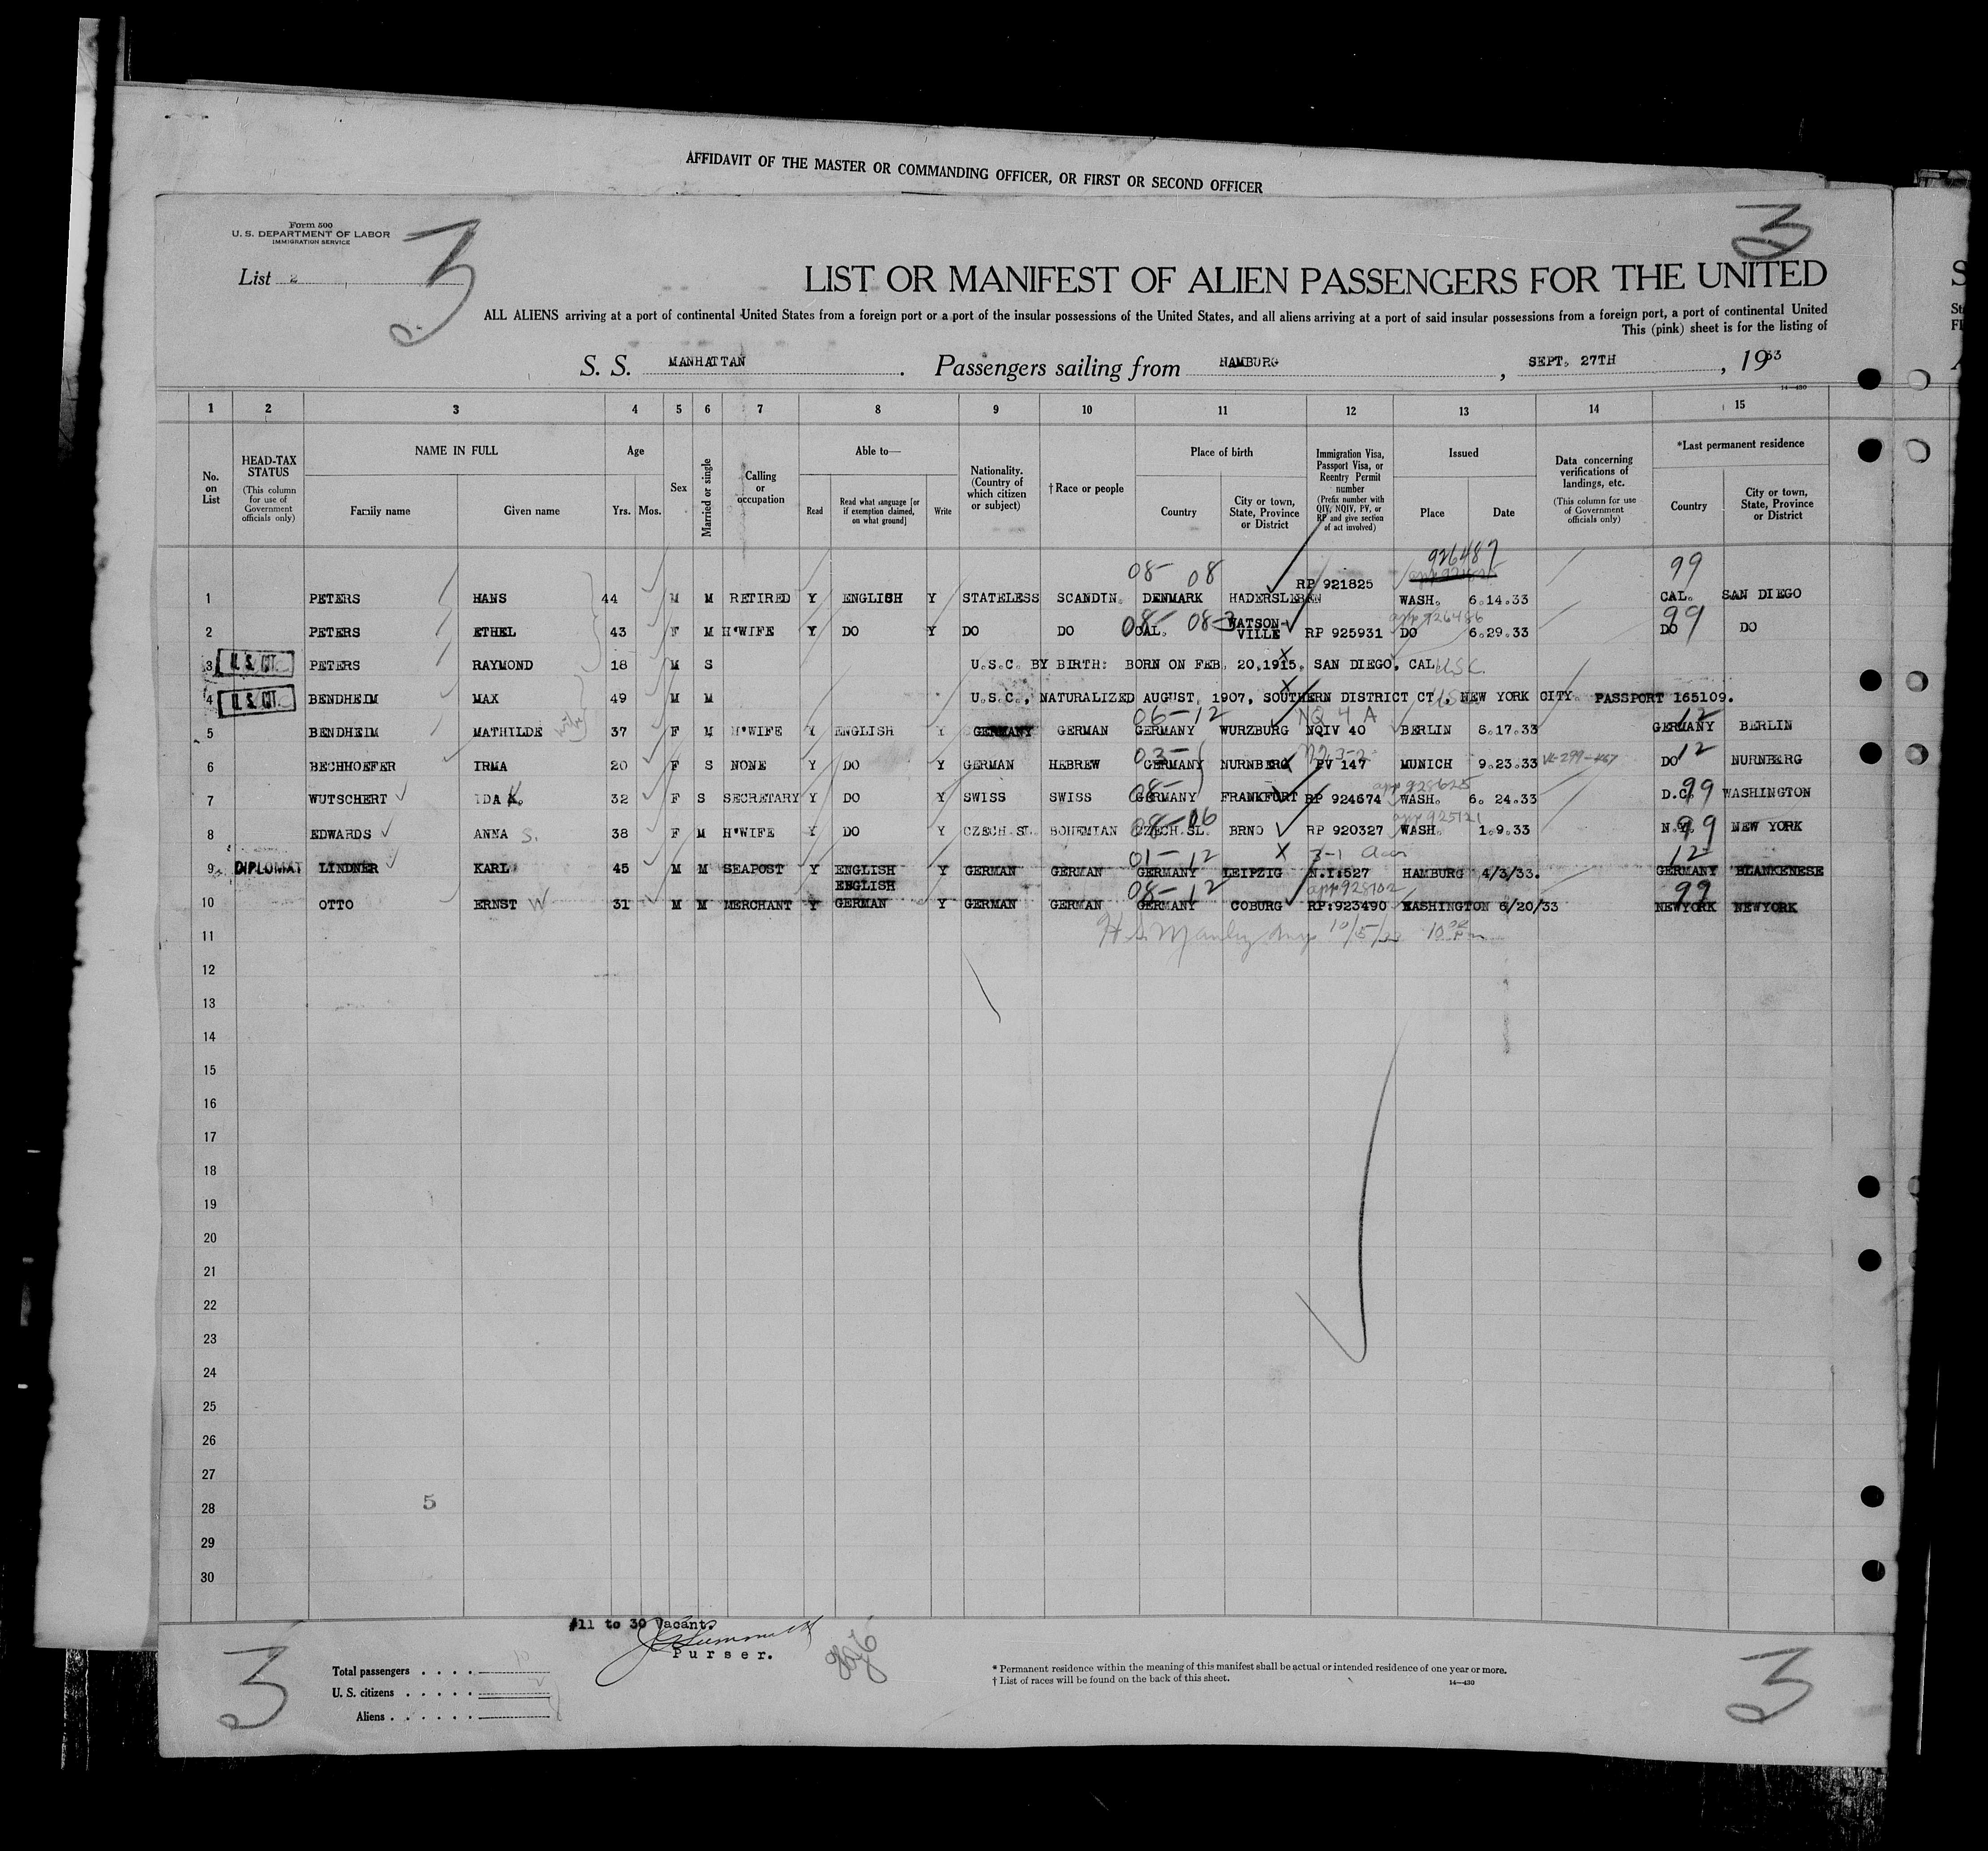 AFFIDAVIT OF THE MASTER OR COMMANDING OFFICER, OR FIRST OR SECOND OFFICER
Form 500
U. S. DEPARTMENT OF LABOR
IMMIGRATION SERVICE
3 3
List 2
LIST OR MANIFEST OF ALIEN PASSENGERS FOR THE UNITED
ALL ALIENS arriving at a port of continental United States from a foreign port or a port of the insular possessions of the United States, and all aliens arriving at a port of said insular possessions from a foreign port, a port of continental United
This (pink) sheet is for the listing of
S. S. MANHATTAN . Passengers sailing from HAMBURG , SEPT. 27TH , 1933
14—430
1 2 3 4 5 6 7 8 9 10 11 12 13 14 15
No. on List
HEAD-TAX STATUS (This column for use of Government officials only)
NAME IN FULL Family name Given name
Age Yrs. Mos.
Sex
Married or single
Calling or occupation
Able to— Read Read what language [or if exemption claimed, on what ground] Write
Nationality. (Country of which citizen or subject)
† Race or people
Place of birth Country City or town, State, Province or District
Immigration Visa, Passport Visa, or Reentry Permit number (Prefix number with QIV, NQIV, PV, or RP and give section of act involved)
Issued Place Date
Data concerning verifications of landings, etc. (This column for use of Government officials only)
*Last permanent residence Country City or town, State, Province or District
08- 08 926487 99
1 PETERS HANS 44 M M RETIRED Y ENGLISH Y STATELESS SCANDIN. DENMARK HADERSLEBEN RP 921825 WASH. 6.14.33 CAL. SAN DIEGO
08- 08-3 app 926486 99
2 PETERS ETHEL 43 F M H'WIFE Y DO Y DO DO CAL. WATSON-VILLE RP 925931 DO 6.29.33 DO DO
3 U. S. CIT. PETERS RAYMOND 18 M S U.S.C. BY BIRTH: BORN ON FEB. 20,1915, SAN DIEGO, CAL USC
4 U. S. CIT. BENDHEIM MAX 49 M M U.S.C., NATURALIZED AUGUST, 1907, SOUTHERN DISTRICT CT., NEW YORK CITY. PASSPORT 165109.
wife 06-12 NQ 4 A 12
5 BENDHEIM MATHILDE 37 F M H'WIFE Y ENGLISH Y GERMANY GERMAN GERMANY WURZBURG NQIV 40 BERLIN 8.17.33 GERMANY BERLIN
03- 3-2 12
6 BECHHOEFER IRMA 20 F S NONE Y DO Y GERMAN HEBREW GERMANY NURNBERG PV 147 MUNICH 9.23.33 DO NURNBERG
08- app 928625 99
7 WUTSCHERT IDA K. 32 F S SECRETARY Y DO Y SWISS SWISS GERMANY FRANKFURT RP 924674 WASH. 6. 24.33 D.C. WASHINGTON
08-06 app 925121 99
8 EDWARDS ANNA S. 38 F M H'WIFE Y DO Y CZECH.SL. BOHEMIAN CZECH.SL. BRNO RP 920327 WASH. 1.9.33 N.Y. NEW YORK
01-12 3-1 12
9 DIPLOMAT LINDNER KARL 45 M M SEAPOST Y ENGLISH Y GERMAN GERMAN GERMANY LEIPZIG N.I:527 HAMBURG 4/3/33. GERMANY BLANKENESE
08-12 app 928102 99
10 OTTO ERNST W 31 M M MERCHANT Y ENGLISH GERMAN Y GERMAN GERMAN GERMANY COBURG RP:923490 WASHINGTON 6/20/33 NEWYORK NEWYORK
11 10/5/33
12
13
14
15
16
17
18
19
20
21
22
23
24
25
26
27
28 5
29
30
#11 to 30 Vacant.
Purser.
3 3
Total passengers
U. S. citizens
Aliens
* Permanent residence within the meaning of this manifest shall be actual or intended residence of one year or more.
† List of races will be found on the back of this sheet.
14—430